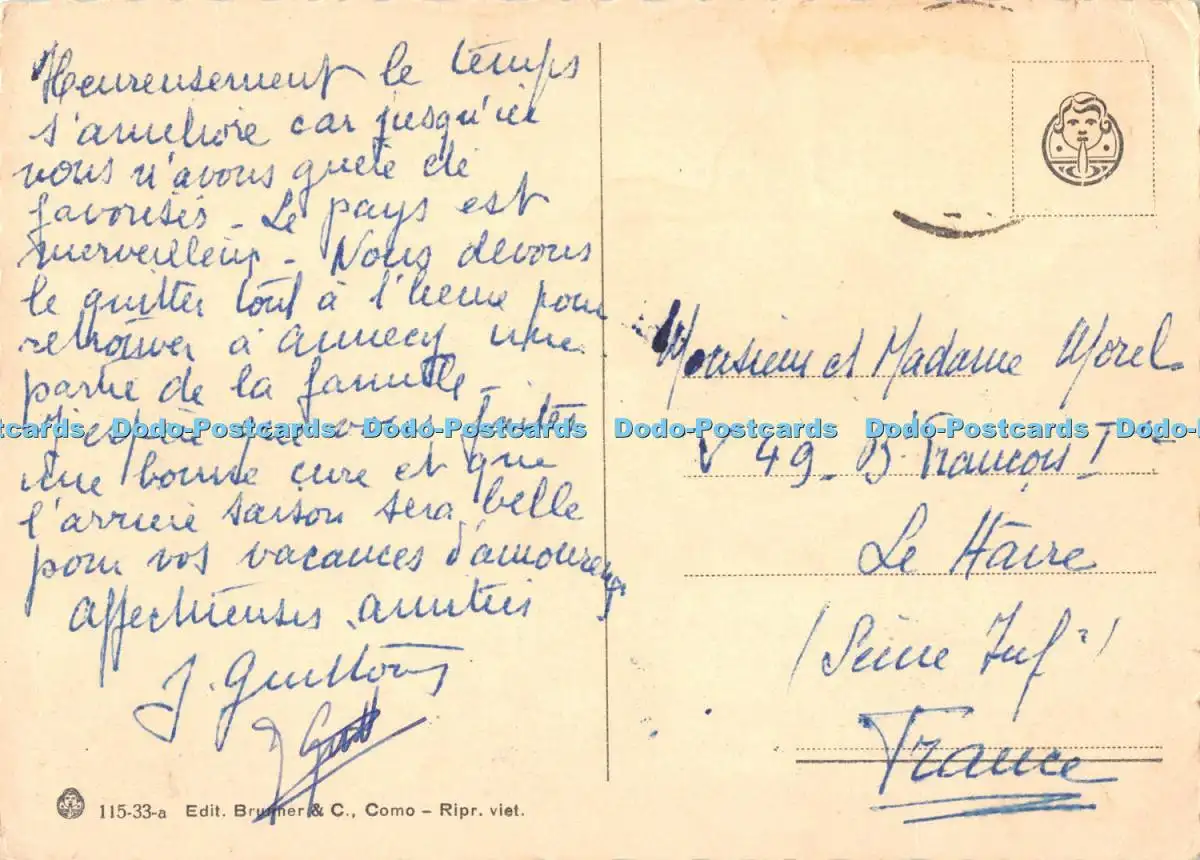 Heureusement le temps
s'améliore car jusqu'ici
nous n'avons guère été
favorisés - Le pays est
merveilleux - Nous devons
le quitter tout à l'heure pour
retrouver à Annecy une
partie de la famille -
J'espère que vous faites
une bonne cure et que
l'arrière saison sera belle
pour vos vacances d'amoureux
Affectueuses amitiés
J. Guittons
Monsieur et Madame Morel
49 - B. François I
Le Havre
(Seine Inf)
France
Dodo-Postcards Dodo-Postcards Dodo-Postcards Dodo-Postcards Dodo-Postcards
115-33-a Edit. Brunner & C., Como – Ripr. viet.